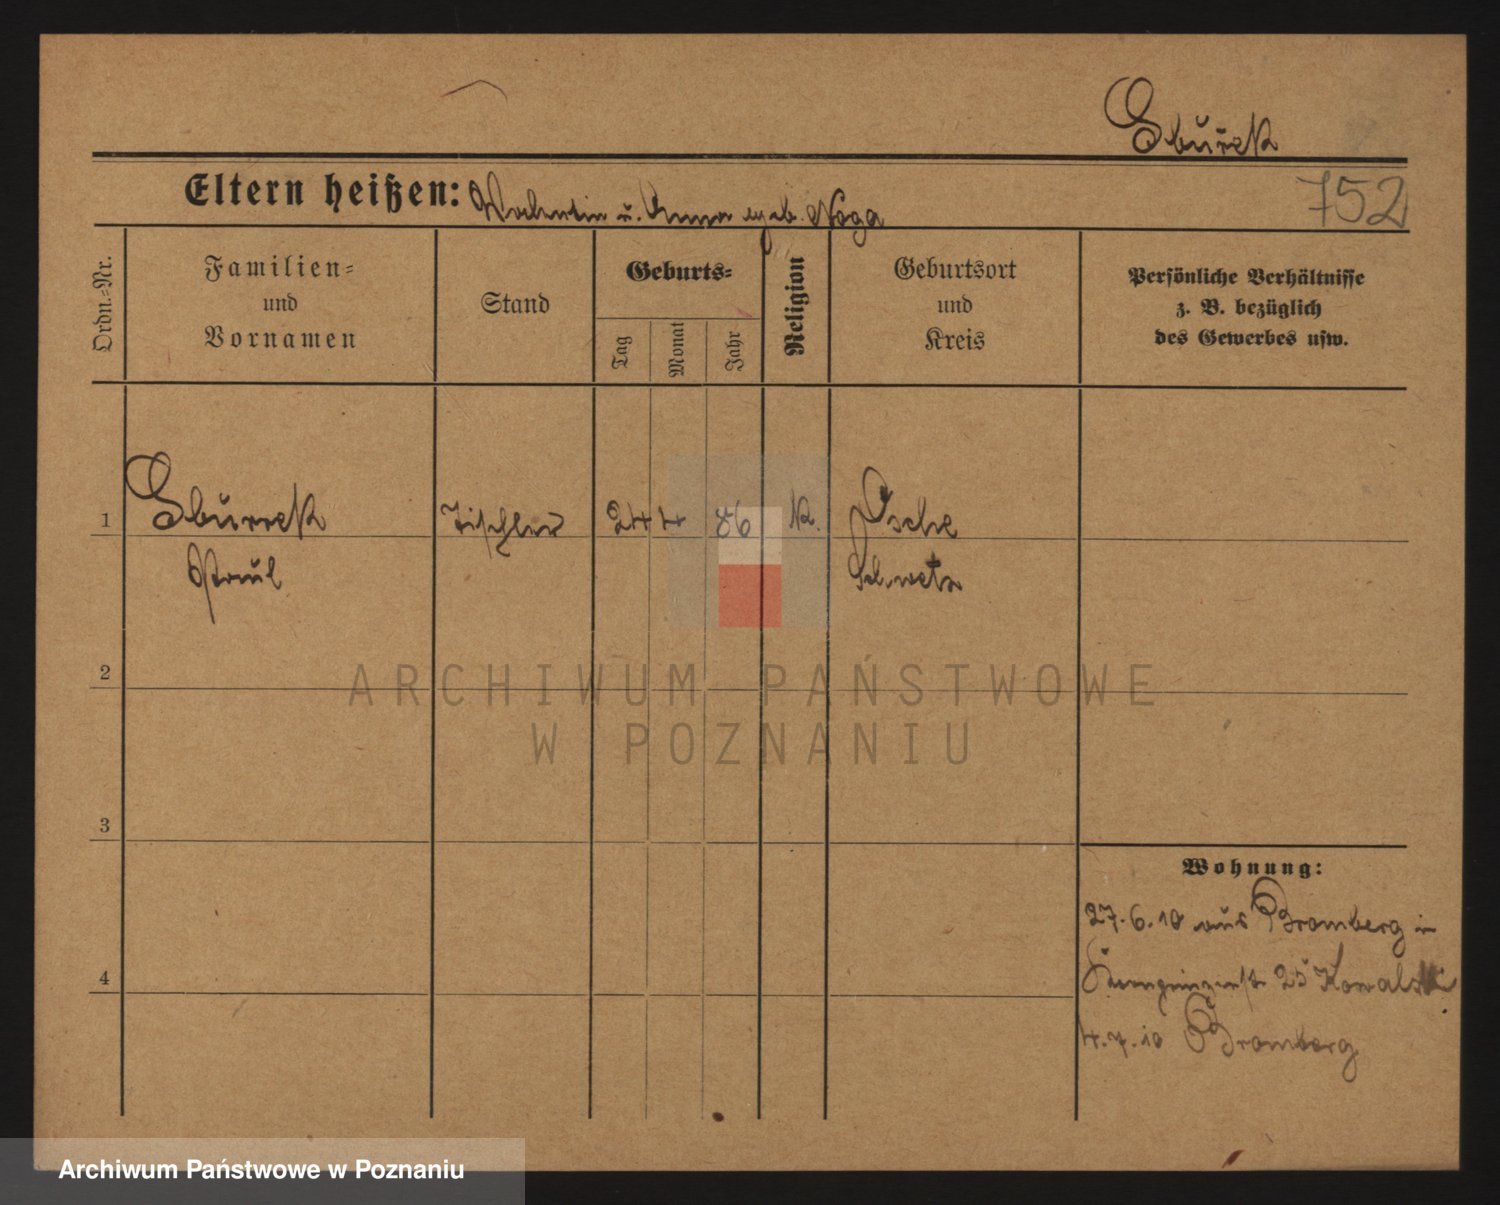 Sburek
Eltern heißen: Valentin u. Anna geb. Noga
752
Ordn.-Nr.
Familien-
und
Vornamen
Stand
Geburts-
Tag
Monat
Jahr
Religion
Geburtsort
und
Kreis
Persönliche Verhältnisse
z. B. bezüglich
des Gewerbes usw.
1 Sburrek Tischler 24 4 86 k. Osche
Paul Schwetz
2
3
4
Wohnung:
27.6.10 aus Bromberg in
Kronprinzenstr 25 Kowalski
4.7.10 Bromberg
ARCHIWUM PAŃSTWOWE
W POZNANIU
Archiwum Państwowe w Poznaniu